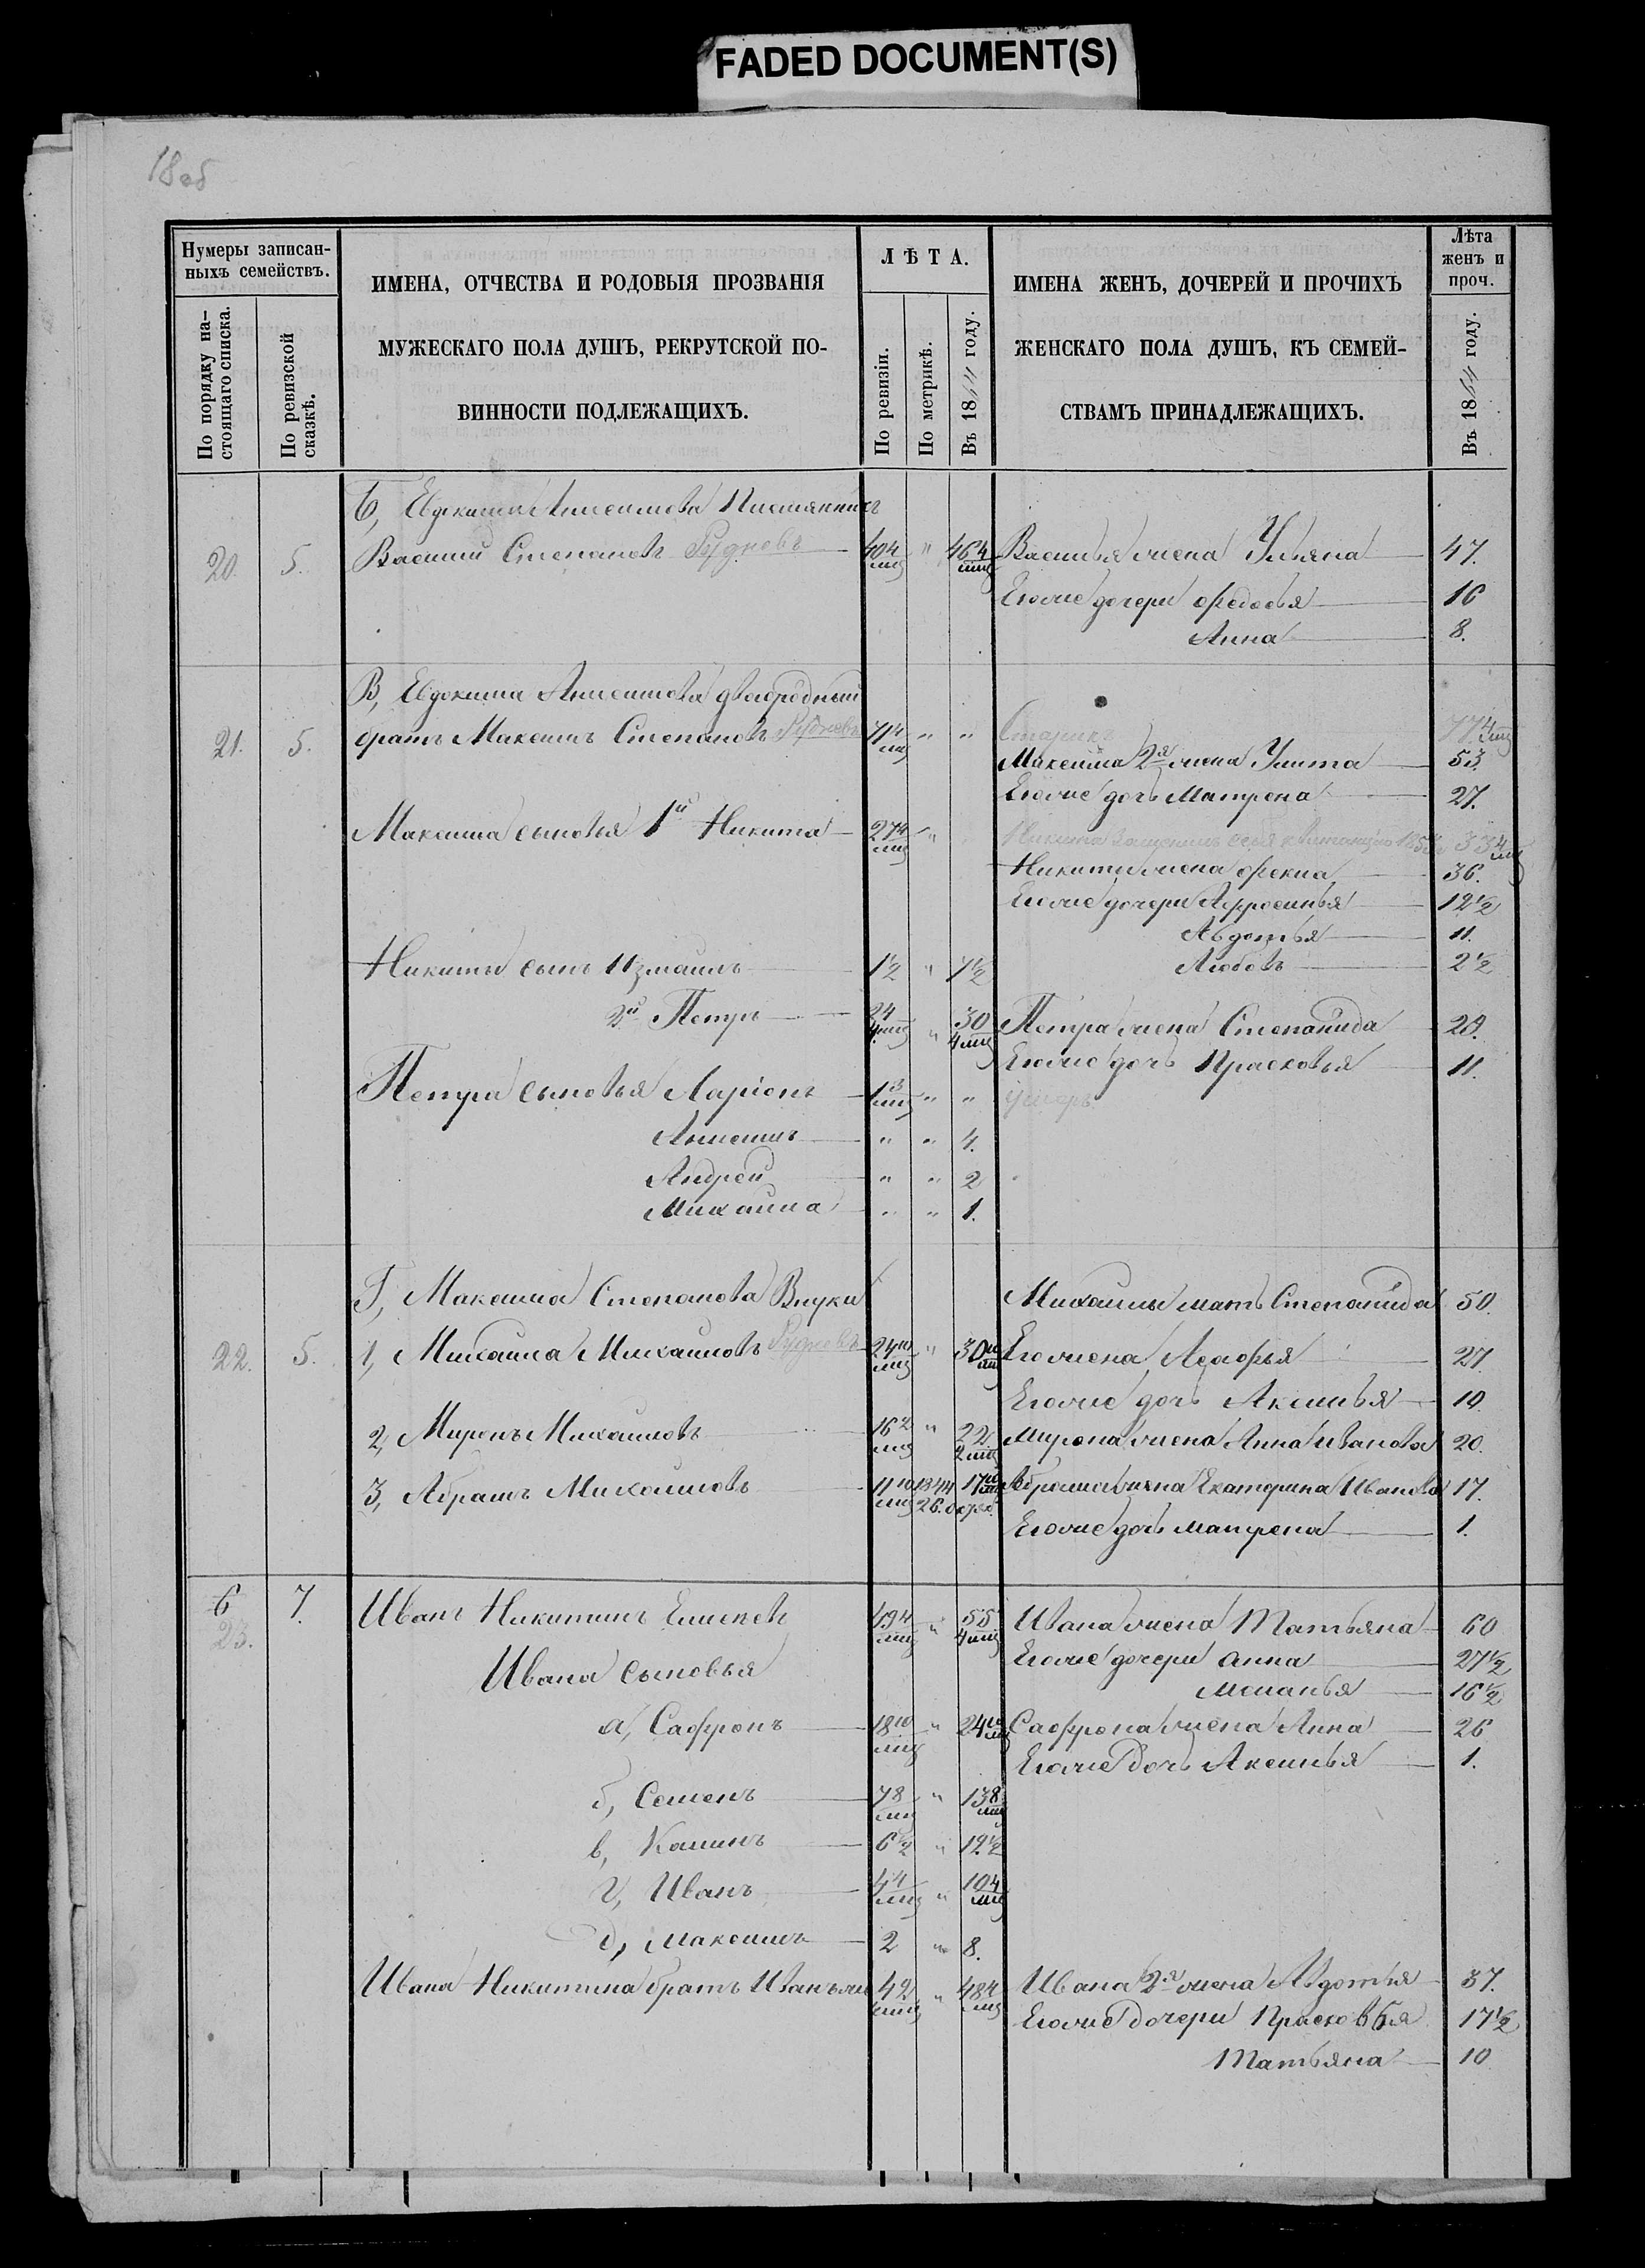 FADED DOCUMENT(S)
18об
Нумеры записан-
ныхъ семействъ.
По порядку на-
стоящаго списка.
По ревизской
сказкѣ.
ИМЕНА, ОТЧЕСТВА И РОДОВЫЯ ПРОЗВАНІЯ
МУЖЕСКАГО ПОЛА ДУШЪ, РЕКРУТСКОЙ ПО-
ВИННОСТИ ПОДЛЕЖАЩИХЪ.
ЛѢТА.
По ревизіи.
По метрикѣ.
Въ 1864 году.
ИМЕНА ЖЕНЪ, ДОЧЕРЕЙ И ПРОЧИХЪ
ЖЕНСКАГО ПОЛА ДУШЪ, КЪ СЕМЕЙ-
СТВАМЪ ПРИНАДЛЕЖАЩИХЪ.
Лѣта
женъ и
проч.
Въ 1864 году.
Б, Евдокима Анисимова Племянникъ
20. 5. Василий Степановъ Рудневъ 40 4/мц " 46 4/мц Василья жена Ульяна 47.
Ево же дочери Федосья 16
Анна 8.
В, Евдокима Анисимова двоюродный
21. 5. братъ Максимъ Степановъ Рудневъ 71 4/мц " " Старикъ 77 4/мц
Максима 2я жена Улита 53.
Ево же дочь Матрена 27.
Максима сыновья 1й Никита 27 4/мц " Никита 33 4/мц
Никиты жена Фекла 36.
Ево же дочери Афросинья 12½
Авдотья 11.
Никиты сынъ Измаилъ 1½ " 7½ Любовь 2½
2й Петръ 24 4/мц " 30 4/мц Петра жена Степанида 29.
Ево же дочь Прасковья 11.
Петра сыновья Ларіонъ 1 3/мц " " умеръ
Анисимъ " " 4.
Андрей " " 2
Михаила " " 1.
Г, Максима Степанова Внуки Михаилы мать Степанида 50.
22. 5. 1, Михаила Михаиловъ Рудневъ 24 10/мц " 30 10/мц Ево жена Агафья 27
Ево же дочь Аксинья 10.
2, Миронъ Михаиловъ 16 2/мц " 22 2/мц Мирона жена Анна Иванова 20.
3, Абрамъ Михаиловъ 11 10/мц 1844 17 Абрама жена Екатерина Иванова 17.
26. октяб. Ево же дочь Матрена 1.
6 7. Иванъ Никитинъ 49 4/мц " 55 4/мц Ивана жена Татьяна 60
23. Ево же дочери Анна 27½
Ивана сыновья Меланья 16½
а, Сафронъ 18 10/мц " 24 10/мц Сафрона жена Анна 26
Ево же дочь Аксинья 1.
б, Семенъ 7 8/мц " 13 8/мц
в, Калинъ 6½ " 12½
г, Иванъ 4 4/мц " 10 4/мц
д, Максимъ 2 " 8.
Ивана Никитина братъ Иванъ же 42 4/мц " 48 4/мц Ивана 2я жена Авдотья 37.
Ево же дочери Прасковья 17½
Татьяна 10